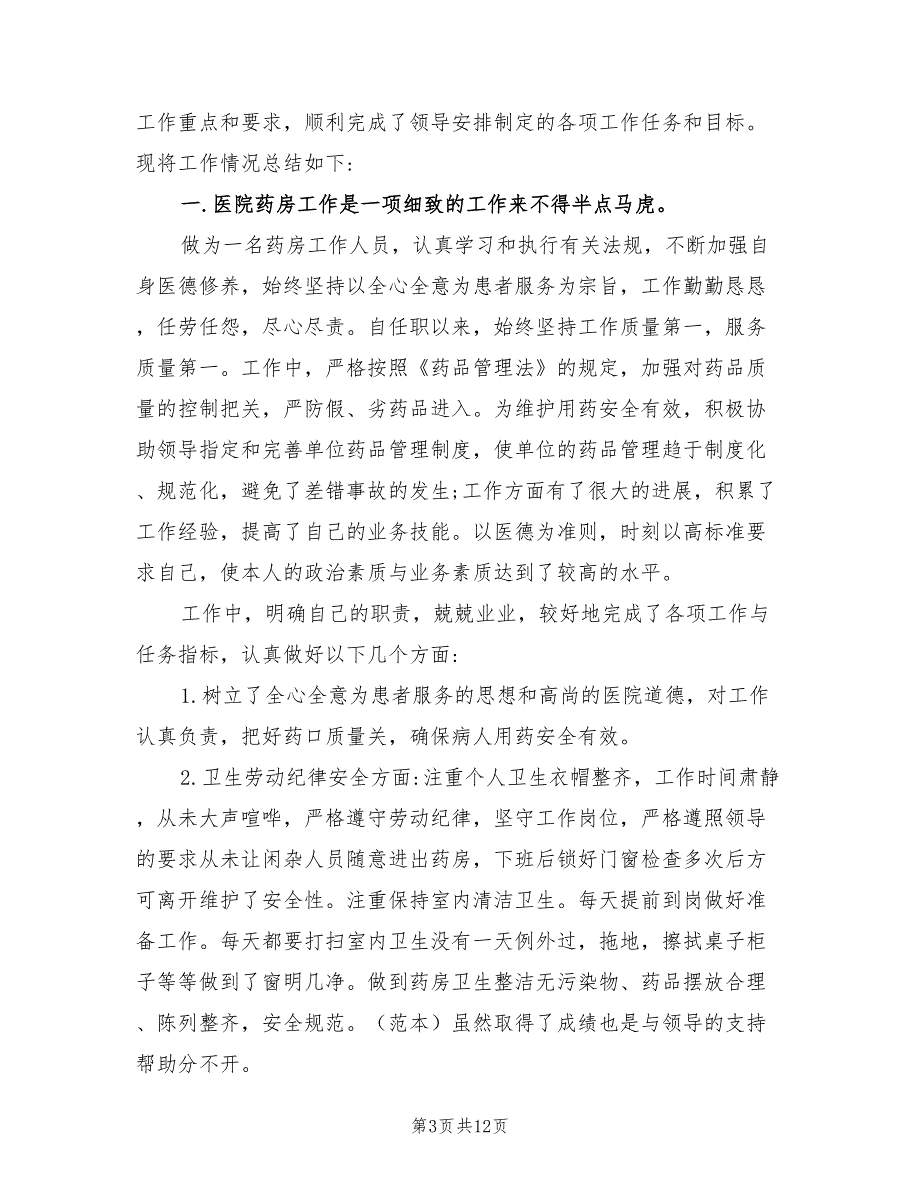 工作重点和要求，顺利完成了领导安排制定的各项工作任务和目标。
现将工作情况总结如下:
一.医院药房工作是一项细致的工作来不得半点马虎。
做为一名药房工作人员，认真学习和执行有关法规，不断加强自
身医德修养，始终坚持以全心全意为患者服务为宗旨，工作勤勤恳恳
，任劳任怨，尽心尽责。自任职以来，始终坚持工作质量第一，服务
质量第一。工作中，严格按照《药品管理法》的规定，加强对药品质
量的控制把关，严防假、劣药品进入。为维护用药安全有效，积极协
助领导指定和完善单位药品管理制度，使单位的药品管理趋于制度化
、规范化，避免了差错事故的发生;工作方面有了很大的进展，积累了
工作经验，提高了自己的业务技能。以医德为准则，时刻以高标准要
求自己，使本人的政治素质与业务素质达到了较高的水平。
工作中，明确自己的职责，兢兢业业，较好地完成了各项工作与
任务指标，认真做好以下几个方面:
1.树立了全心全意为患者服务的思想和高尚的医院道德，对工作
认真负责，把好药口质量关，确保病人用药安全有效。
2.卫生劳动纪律安全方面:注重个人卫生衣帽整齐，工作时间肃静
，从未大声喧哗，严格遵守劳动纪律，坚守工作岗位，严格遵照领导
的要求从未让闲杂人员随意进出药房，下班后锁好门窗检查多次后方
可离开维护了安全性。注重保持室内清洁卫生。每天提前到岗做好准
备工作。每天都要打扫室内卫生没有一天例外过，拖地，擦拭桌子柜
子等等做到了窗明几净。做到药房卫生整洁无污染物、药品摆放合理
、陈列整齐，安全规范。（范本）虽然取得了成绩也是与领导的支持
帮助分不开。
第3页共12页